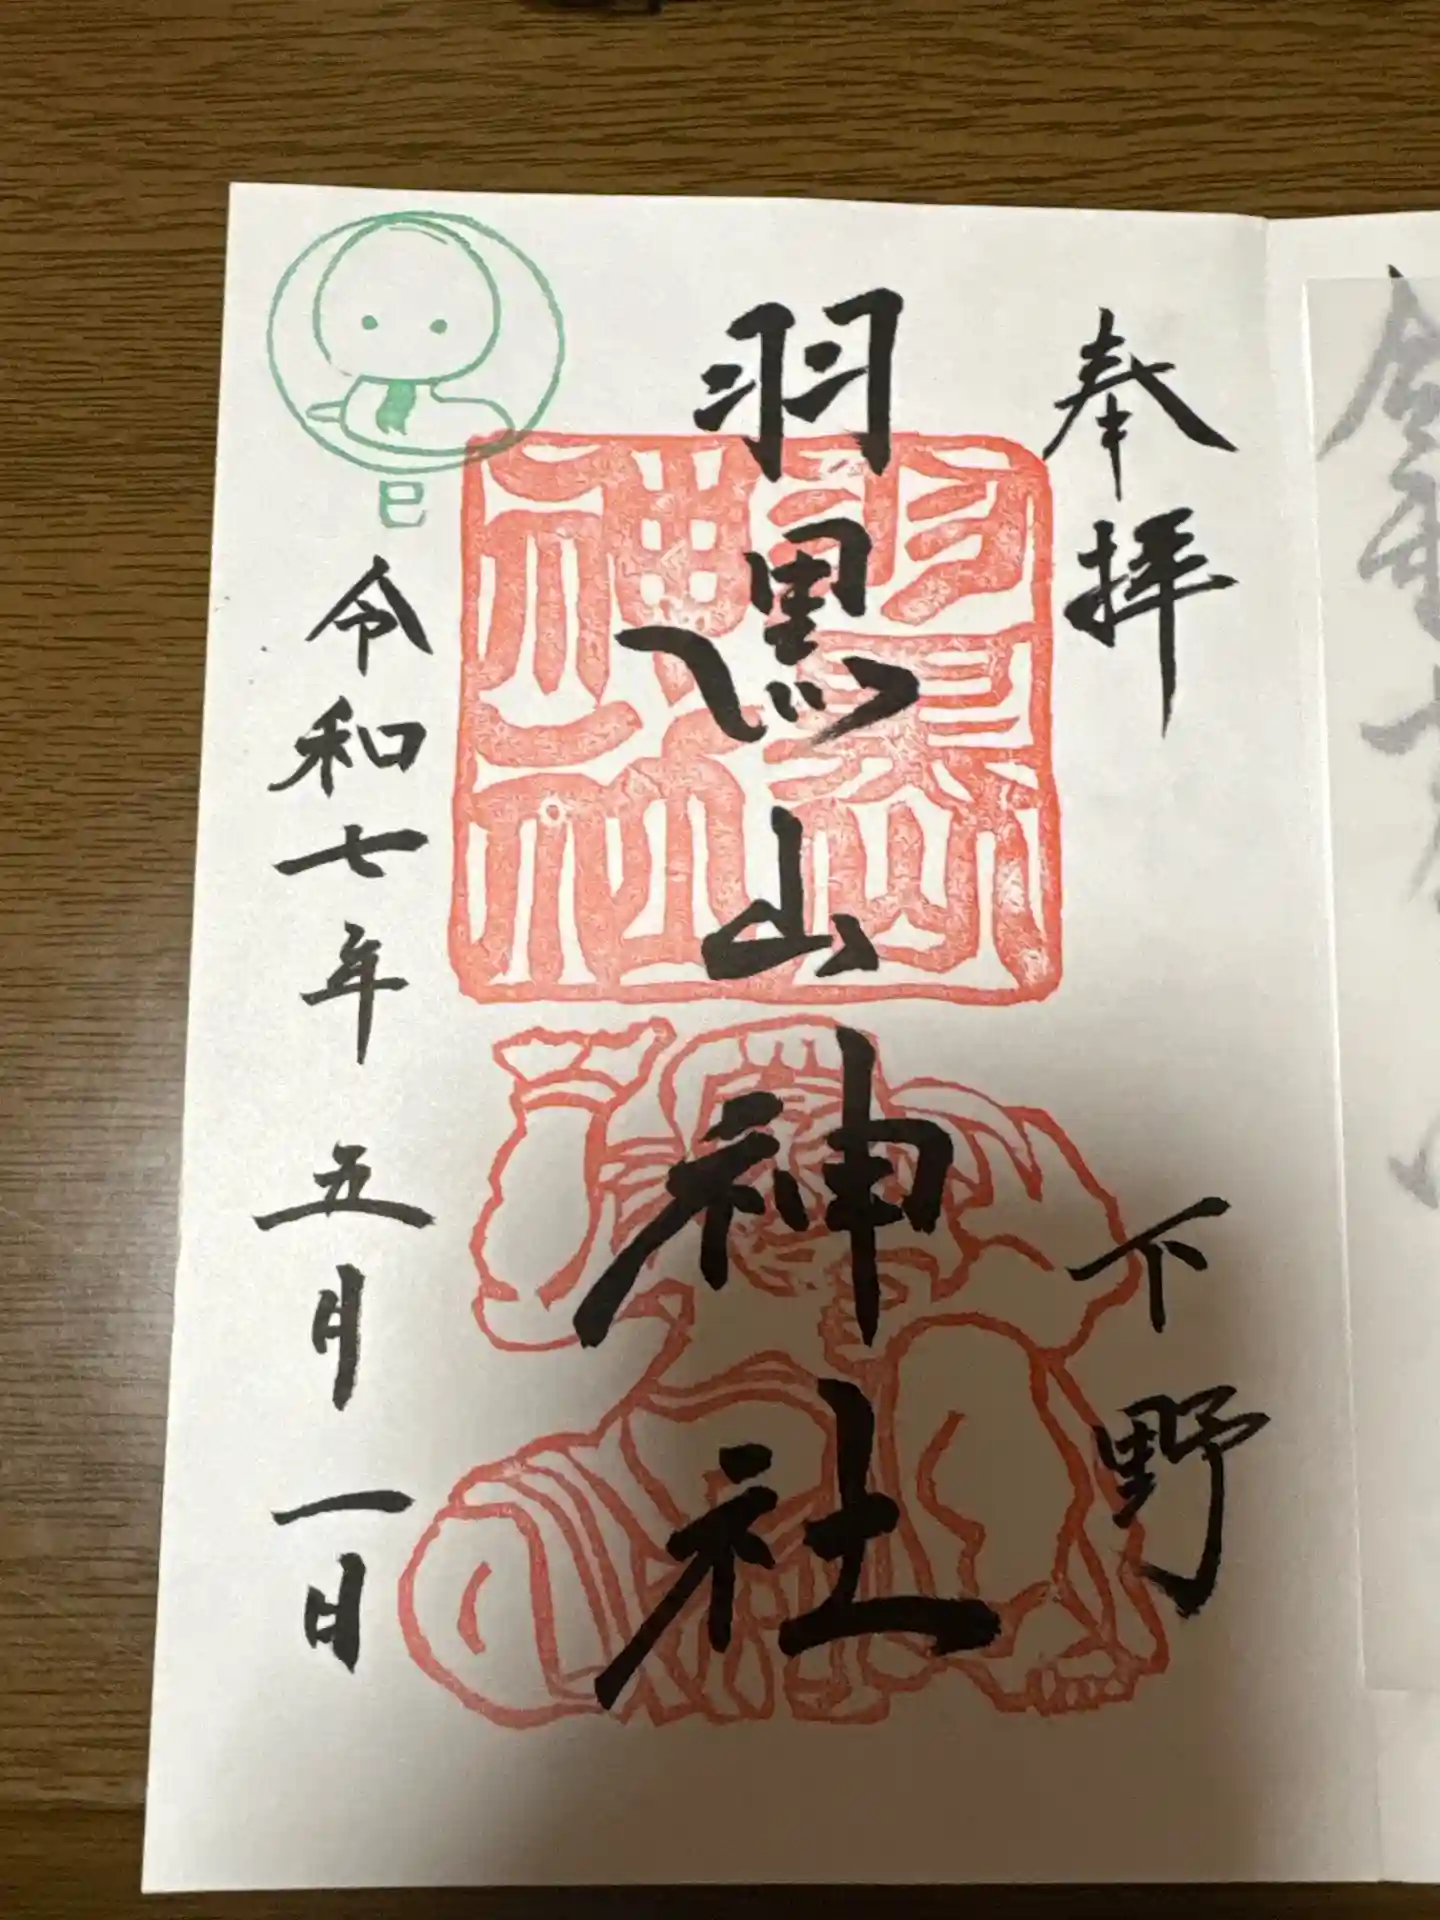 奉拝
下野
羽黒山神社
羽黒山神社
巳
令和七年五月一日